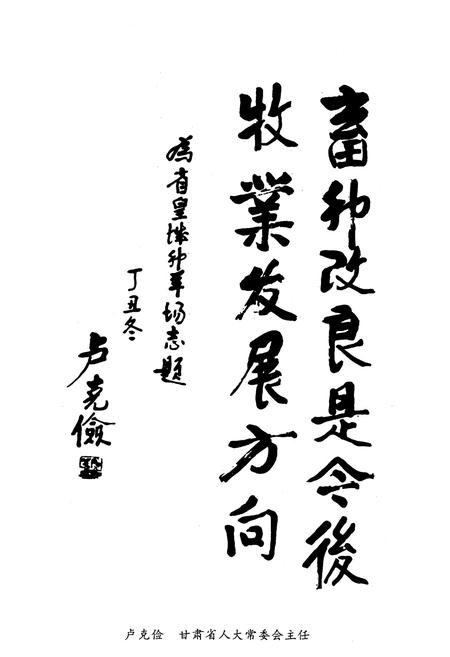 畜种改良是今後
牧業发展方向
為省皇城种羊场志题
丁丑冬
卢克儉
卢克俭　甘肃省人大常委会主任